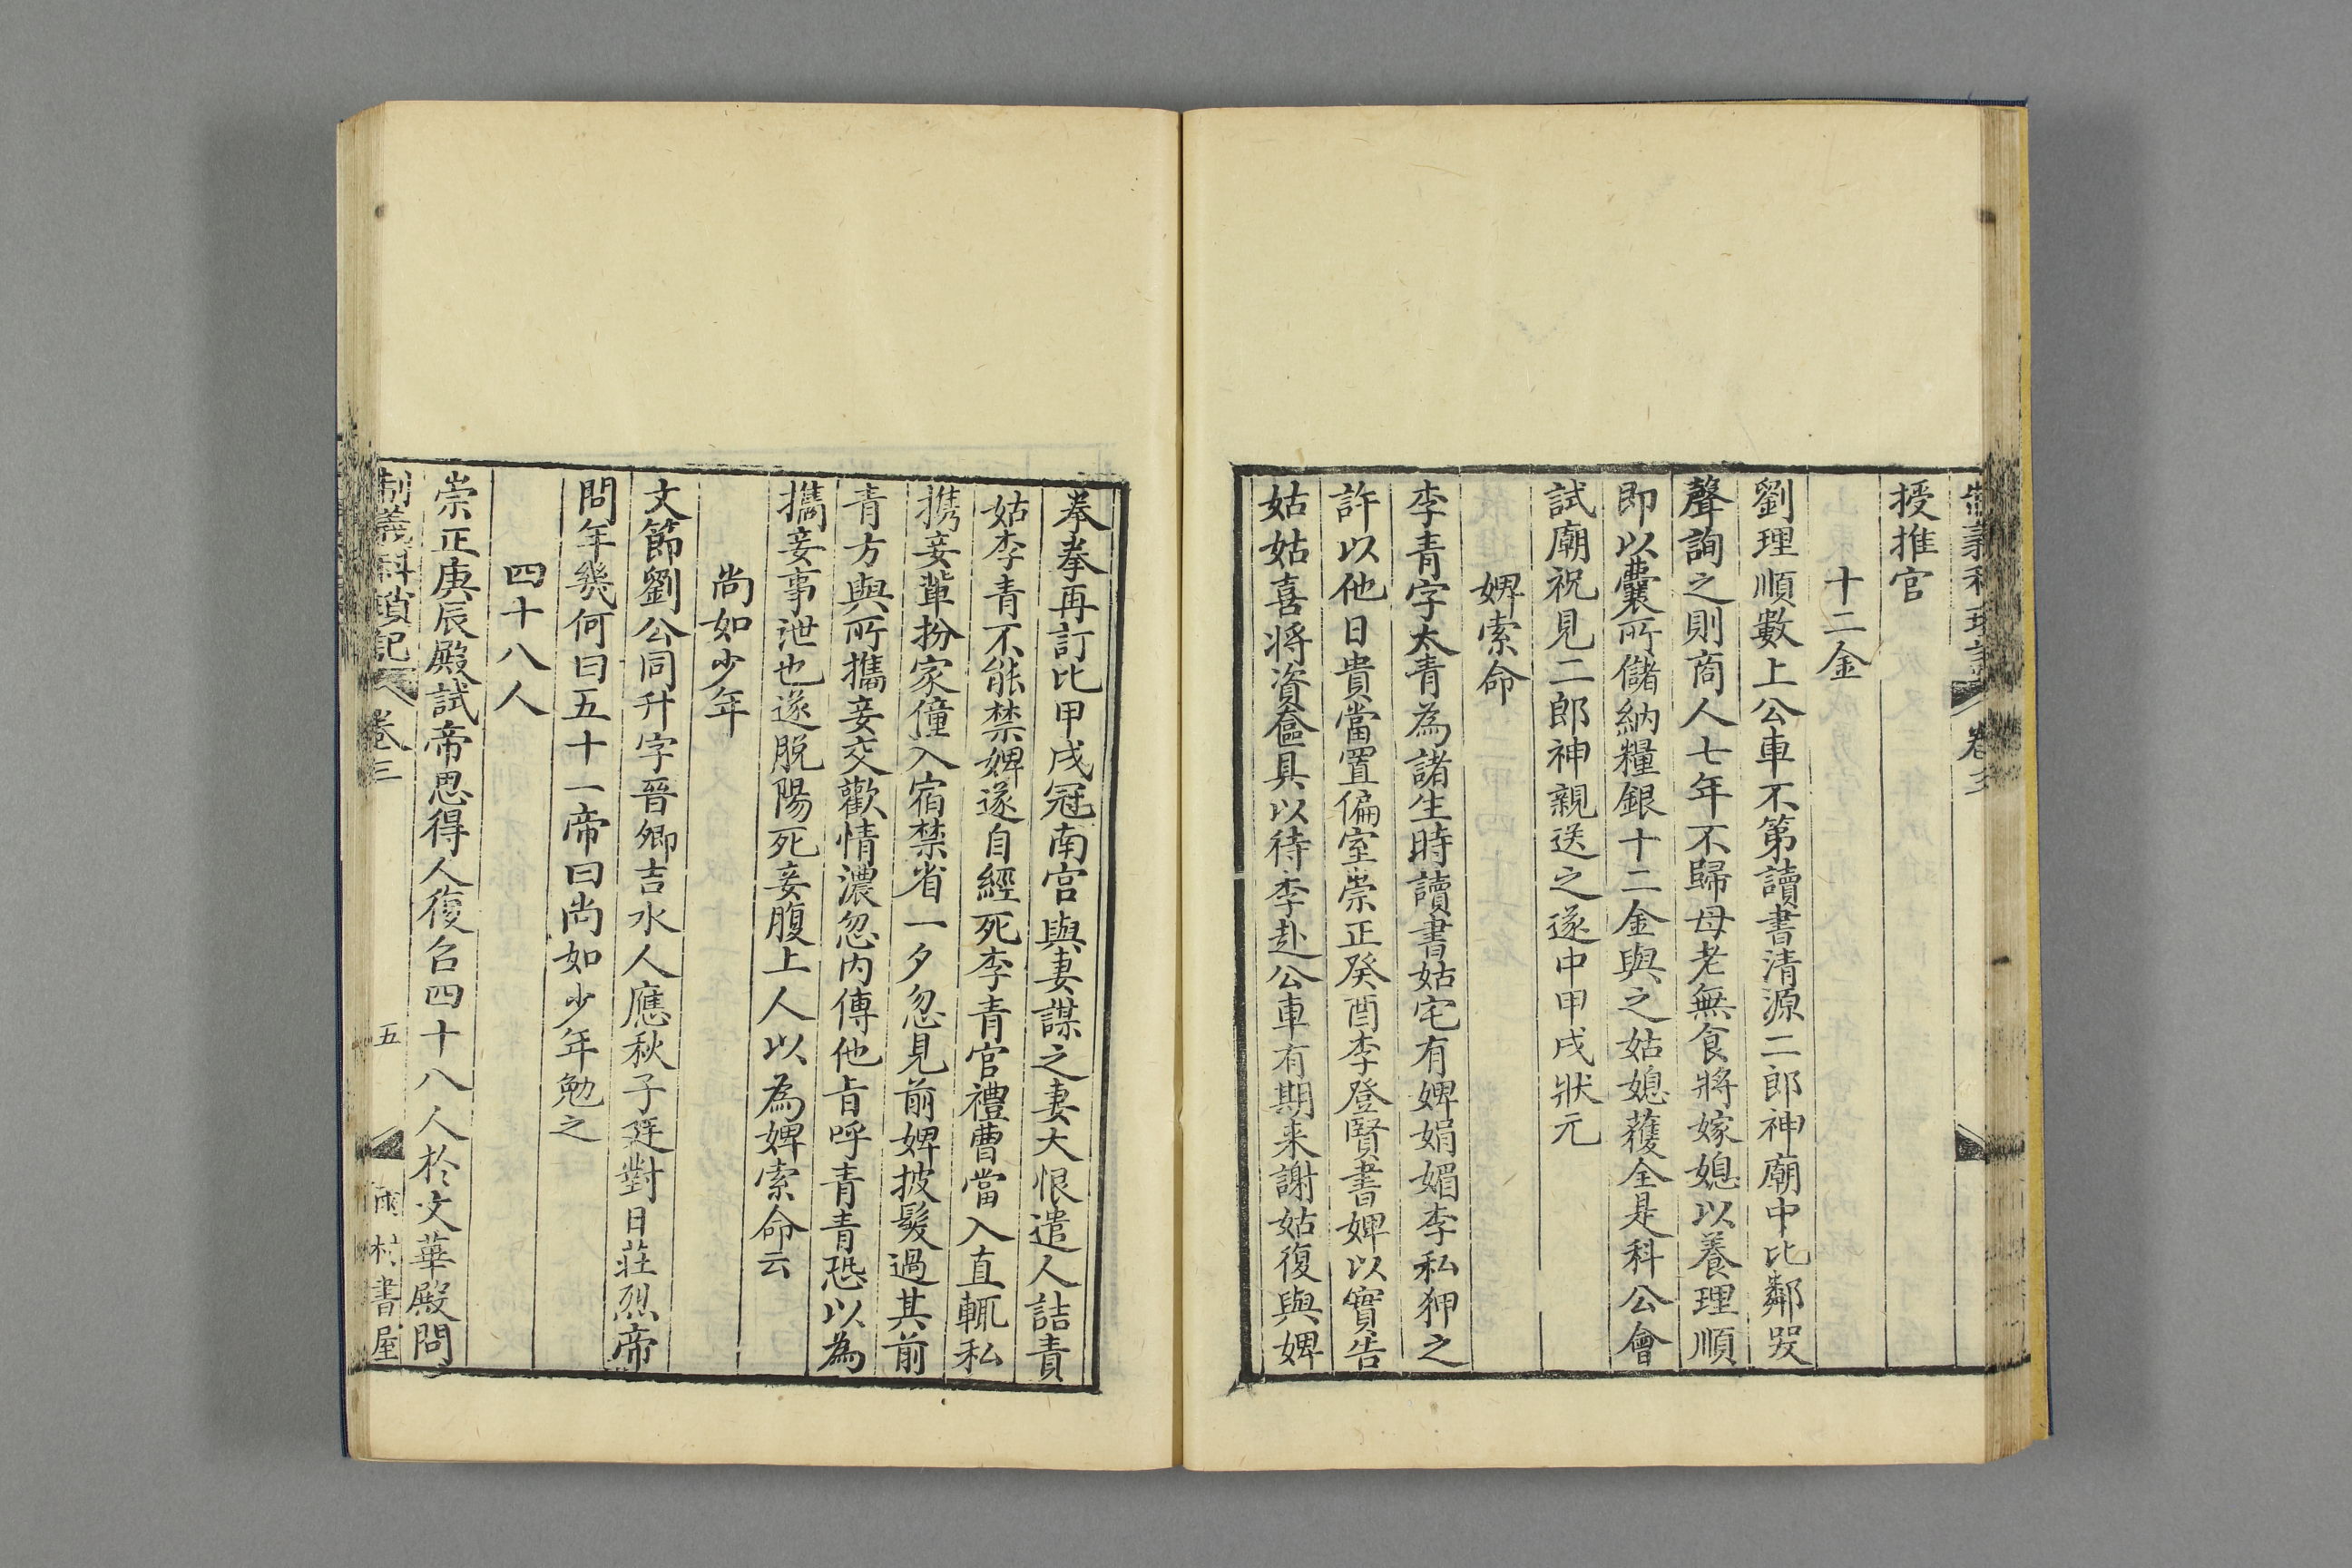 授推官
十二金
劉理順數上公車不第讀書清源二郎神廟中比鄰哭
聲詢之則商人七年不歸母老無食將嫁媳以養理順
即以囊所儲納糧銀十二金與之姑媳獲全是科公會
試廟祝見二郎神親送之遂中甲戌狀元
婢索命
李青字太青為諸生時讀書姑宅有婢娟媚李私狎之
許以他日貴當置偏室崇正癸酉李登賢書婢以實告
姑姑喜將資奩具以待李赴公車有期来謝姑復與婢
拳拳再訂比甲戌冠南宫與妻謀之妻大恨遣人詰責
姑李青不能禁婢遂自經死李青官禮曹當入直輒私
携妾輩扮家僮入宿禁省一夕忽見前婢披髮過其前
青方與所攜妾交歡情濃忽内傳他㫖呼青青恐以為
攜妾事泄也遂脱陽死妾腹上人以為婢索命云
尚如少年
文節劉公同升字晉卿吉水人應秋子廷對日莊烈帝
問年幾何曰五十一帝曰尚如少年勉之
四十八人
崇正庚辰殿試帝思得人復召四十八人於文華殿問
制義科瑣記 卷三 五 書屋